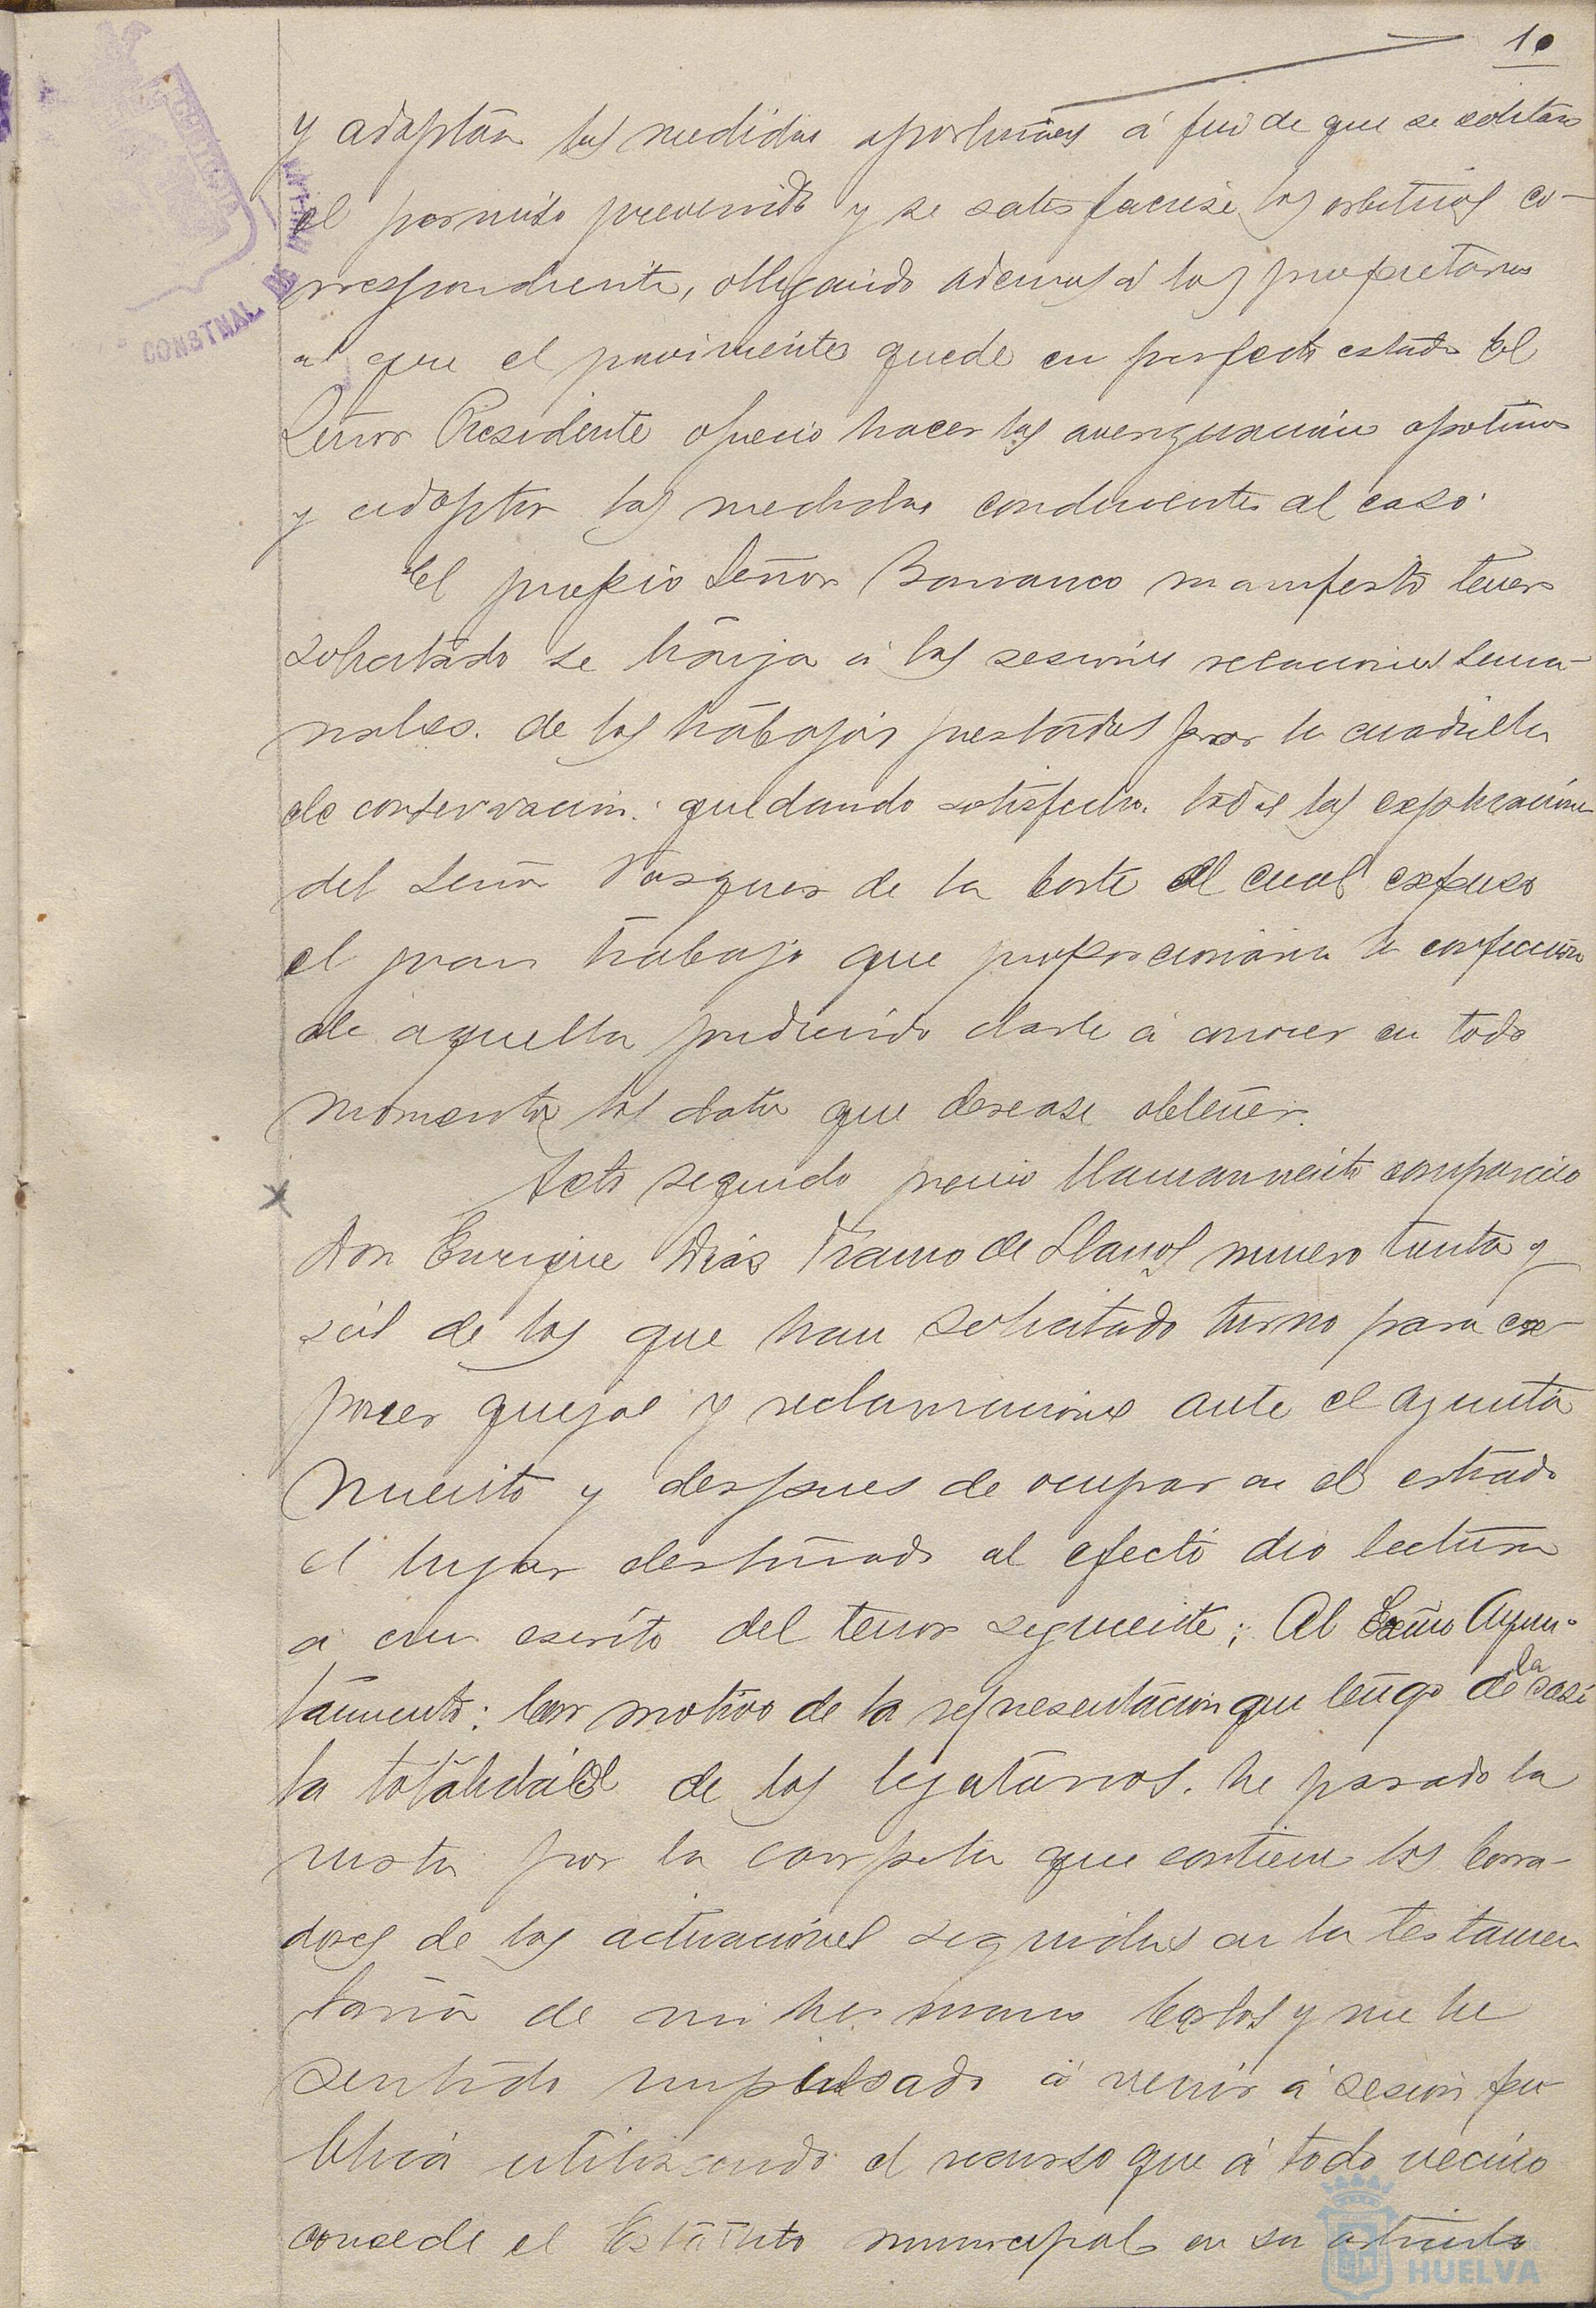 10
y adoptar las medidas oportunas á fin de que se solitara
el permiso prevenido y se satisfaciese los arbitrios co-
rrespondiente, obligando ademas á los propietarios
á que el pavimento quede en perfecto estado El
Señor Presidente ofrecio hacer las averiguacion oportunas
y adoptar las medidas conducentes al caso.
El propio Señor Barranco manifestó tener
solicitado se traiga á las sesiones relaciones sema-
nales. de los trabajos prestados por la cuadrilla
de conservacion: quedando satisfecho. tras las explicacione
del Señor Vasquez de la Corte el cual expuso
el gran trabajo que proporcionaria la confeccion
de aquella pudiendo darle á conocer en todo
momento los datos que desease obtener.
Acto seguido previo llamamiento comparecio
Don Enrique Dias Franco de Llanos numero trenta y
seis de los que han solicitado turno para ex-
poner quejas y reclamaciones ante el ayunta
miento y despues de ocupar en el estrado
el lugar destinado al efecto dio lectura
á un escrito del tenor seguiente; Al Excmo Ayun-
tamiento: Con motivo de la representacion que tengo de la casi
la totalidad de los legatarios. he pasado la
vista por la carpeta que contiene los borra-
dores de las actuaciones seguidas en la testamen
taria de mi hermano Carlos y me he
sentido impulsado á venir á sesion pu-
blica utilizando el recurso que á todo vecino
concede el Estatuto municipal en su articulo
CONSTNAL DE
HUELVA